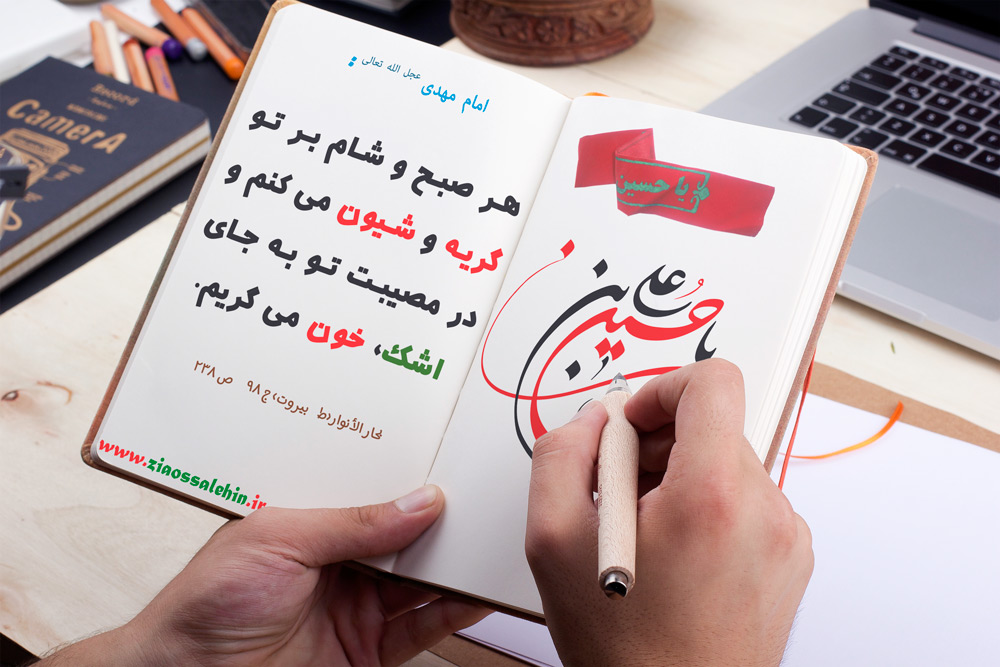 امام مهدی عجل الله تعالی :
هر صبح و شام بر تو
گریه و شیون می کنم و
در مصیبت تو به جای
اشک، خون می گریم.
بحارالأنوار(ط بیروت)ج ۹۸ ص۲۳۸
www.ziaossalehin.ir
یا حسین
حسین بن علی
Record
CamerA